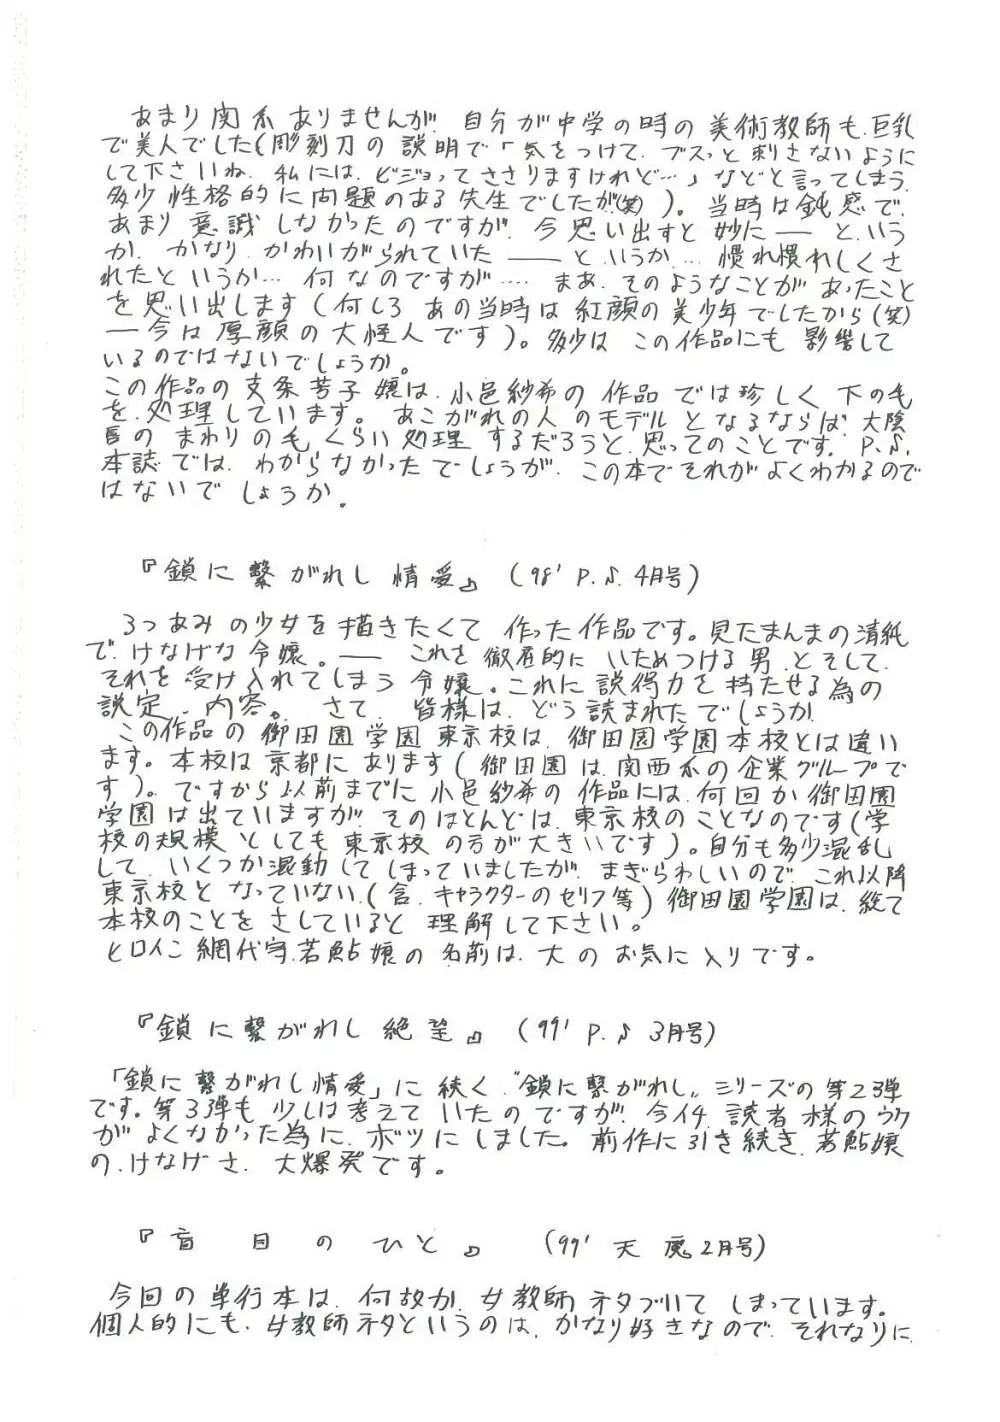 あまり関系ありませんが、自分が中学の時の美術教師も、巨乳
で美人でした(彫刻刀の説明で「気をつけて、ブスっと刺さないように
して下さいね、私には、ビジョってささりますけれど…」などと言ってしまう、
多少性格的に問題のある先生でしたが(笑))。当時は鈍感で、
あまり意識しなかったのですが、今思い出すと妙に――と、いう
か、かなり、かわいがられていた――と、いうか…、慣れ慣れしくさ
れたというか…何なのですが…。まあ、そのようなことがあったこと
を思い出します(何しろあの当時は紅顔の美少年でしたから(笑)
―今は厚顔の大怪人です)。多少は、この作品にも影響して
いるのではないでしょうか。
この作品の支条芳子嬢は、小邑紗希の作品では珍しく下の毛
を、処理しています。あこがれの人のモデルとなるならば、大陰
唇のまわりの毛、くらい処理するだろうと、思ってのことです。P.♪.
本誌では、わからなかったでしょうが、この本でそれがよくわかるので
はないでしょうか。
『鎖に繋がれし情愛』(98' P.♪.4月号)
3つあみの少女を描きたくて作った作品です。見たまんまの清純
で、けなげな令嬢。――これを徹底的にいためつける男、とそして、
それを受け入れてしまう令嬢。これに説得力を持たせる為の
設定、内容。さて、皆様は、どう読まれたでしょうか。
この作品の御田園学園東京校は、御田園学園本校とは違い
ます。本校は京都にあります(御田園は、関西系の企業グループで
す)。ですから以前までに小邑紗希の作品には、何回か御田園
学園は出ていますが、そのほとんどは、東京校のことなのです(学
校の規模としても東京校の方が大きいです)。自分も多少混乱
して、いくつか混動してしまっていましたが、まぎらわしいので、これ以降
東京校となっていない(含、キャラクターのセリフ等)御田園学園は、総て
本校のことをさしていると理解して下さい。
ヒロイン網代守若鮎嬢の名前は、大のお気に入りです。
『鎖に繋がれし絶望』(99' P.♪3月号)
「鎖に繋がれし情愛」に続く、"鎖に繋がれし"シリーズの第23弾
です。第33弾も、少しは考えていたのですが、今イチ、読者様のウケ
がよくなかった為に、ボツにしました。前作に引き続き、若鮎嬢
の、けなげさ、大爆発です。
『盲目のひと』(99'天魔2月号)
今回の単行本は、何故か、女教師ネタづいてしまっています。
個人的にも、女教師ネタというのは、かなり好きなので、それなりに、